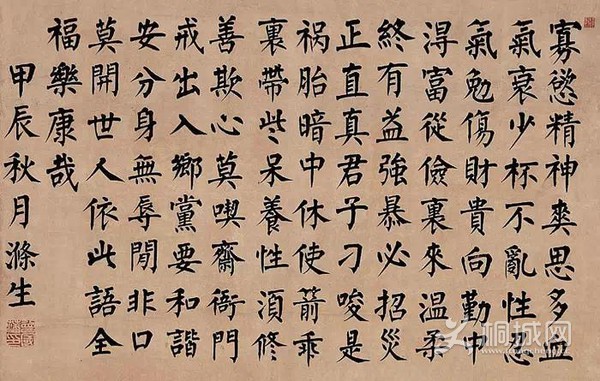 寡慾精神爽思多血
氣衰少杯不亂性忍
氣勉傷財貴向勤中
淂富從儉裏來温柔
終有益強暴必招災
正直真君子刁唆是
祸胎暗中休使箭乖
裏帶些呆養性須修
善欺心莫喫齋衙門
戒出入鄉黨要和諧
安分身無辱閒非口
莫開世人依此語全
福樂康哉
甲辰秋月滌生
桐城网